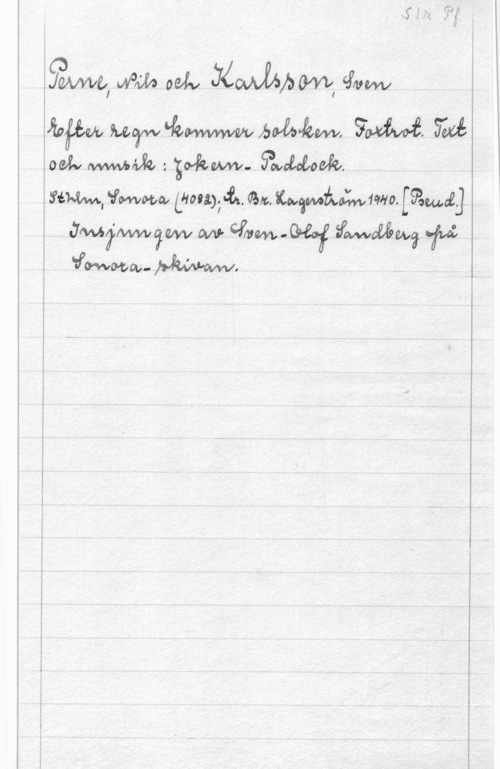 S l n Pf
Perne, Nils och Karlsson, Sven
Efter regn kommer solsken. Foxtrot. Text
och musik : Jokern - Paddock.
Sthlm, Sonora (4082); tr. Br. Lagerström 1940. [Pseud.]
Insjungen av Sven-Olof Sandberg på
Sonora-skivan.